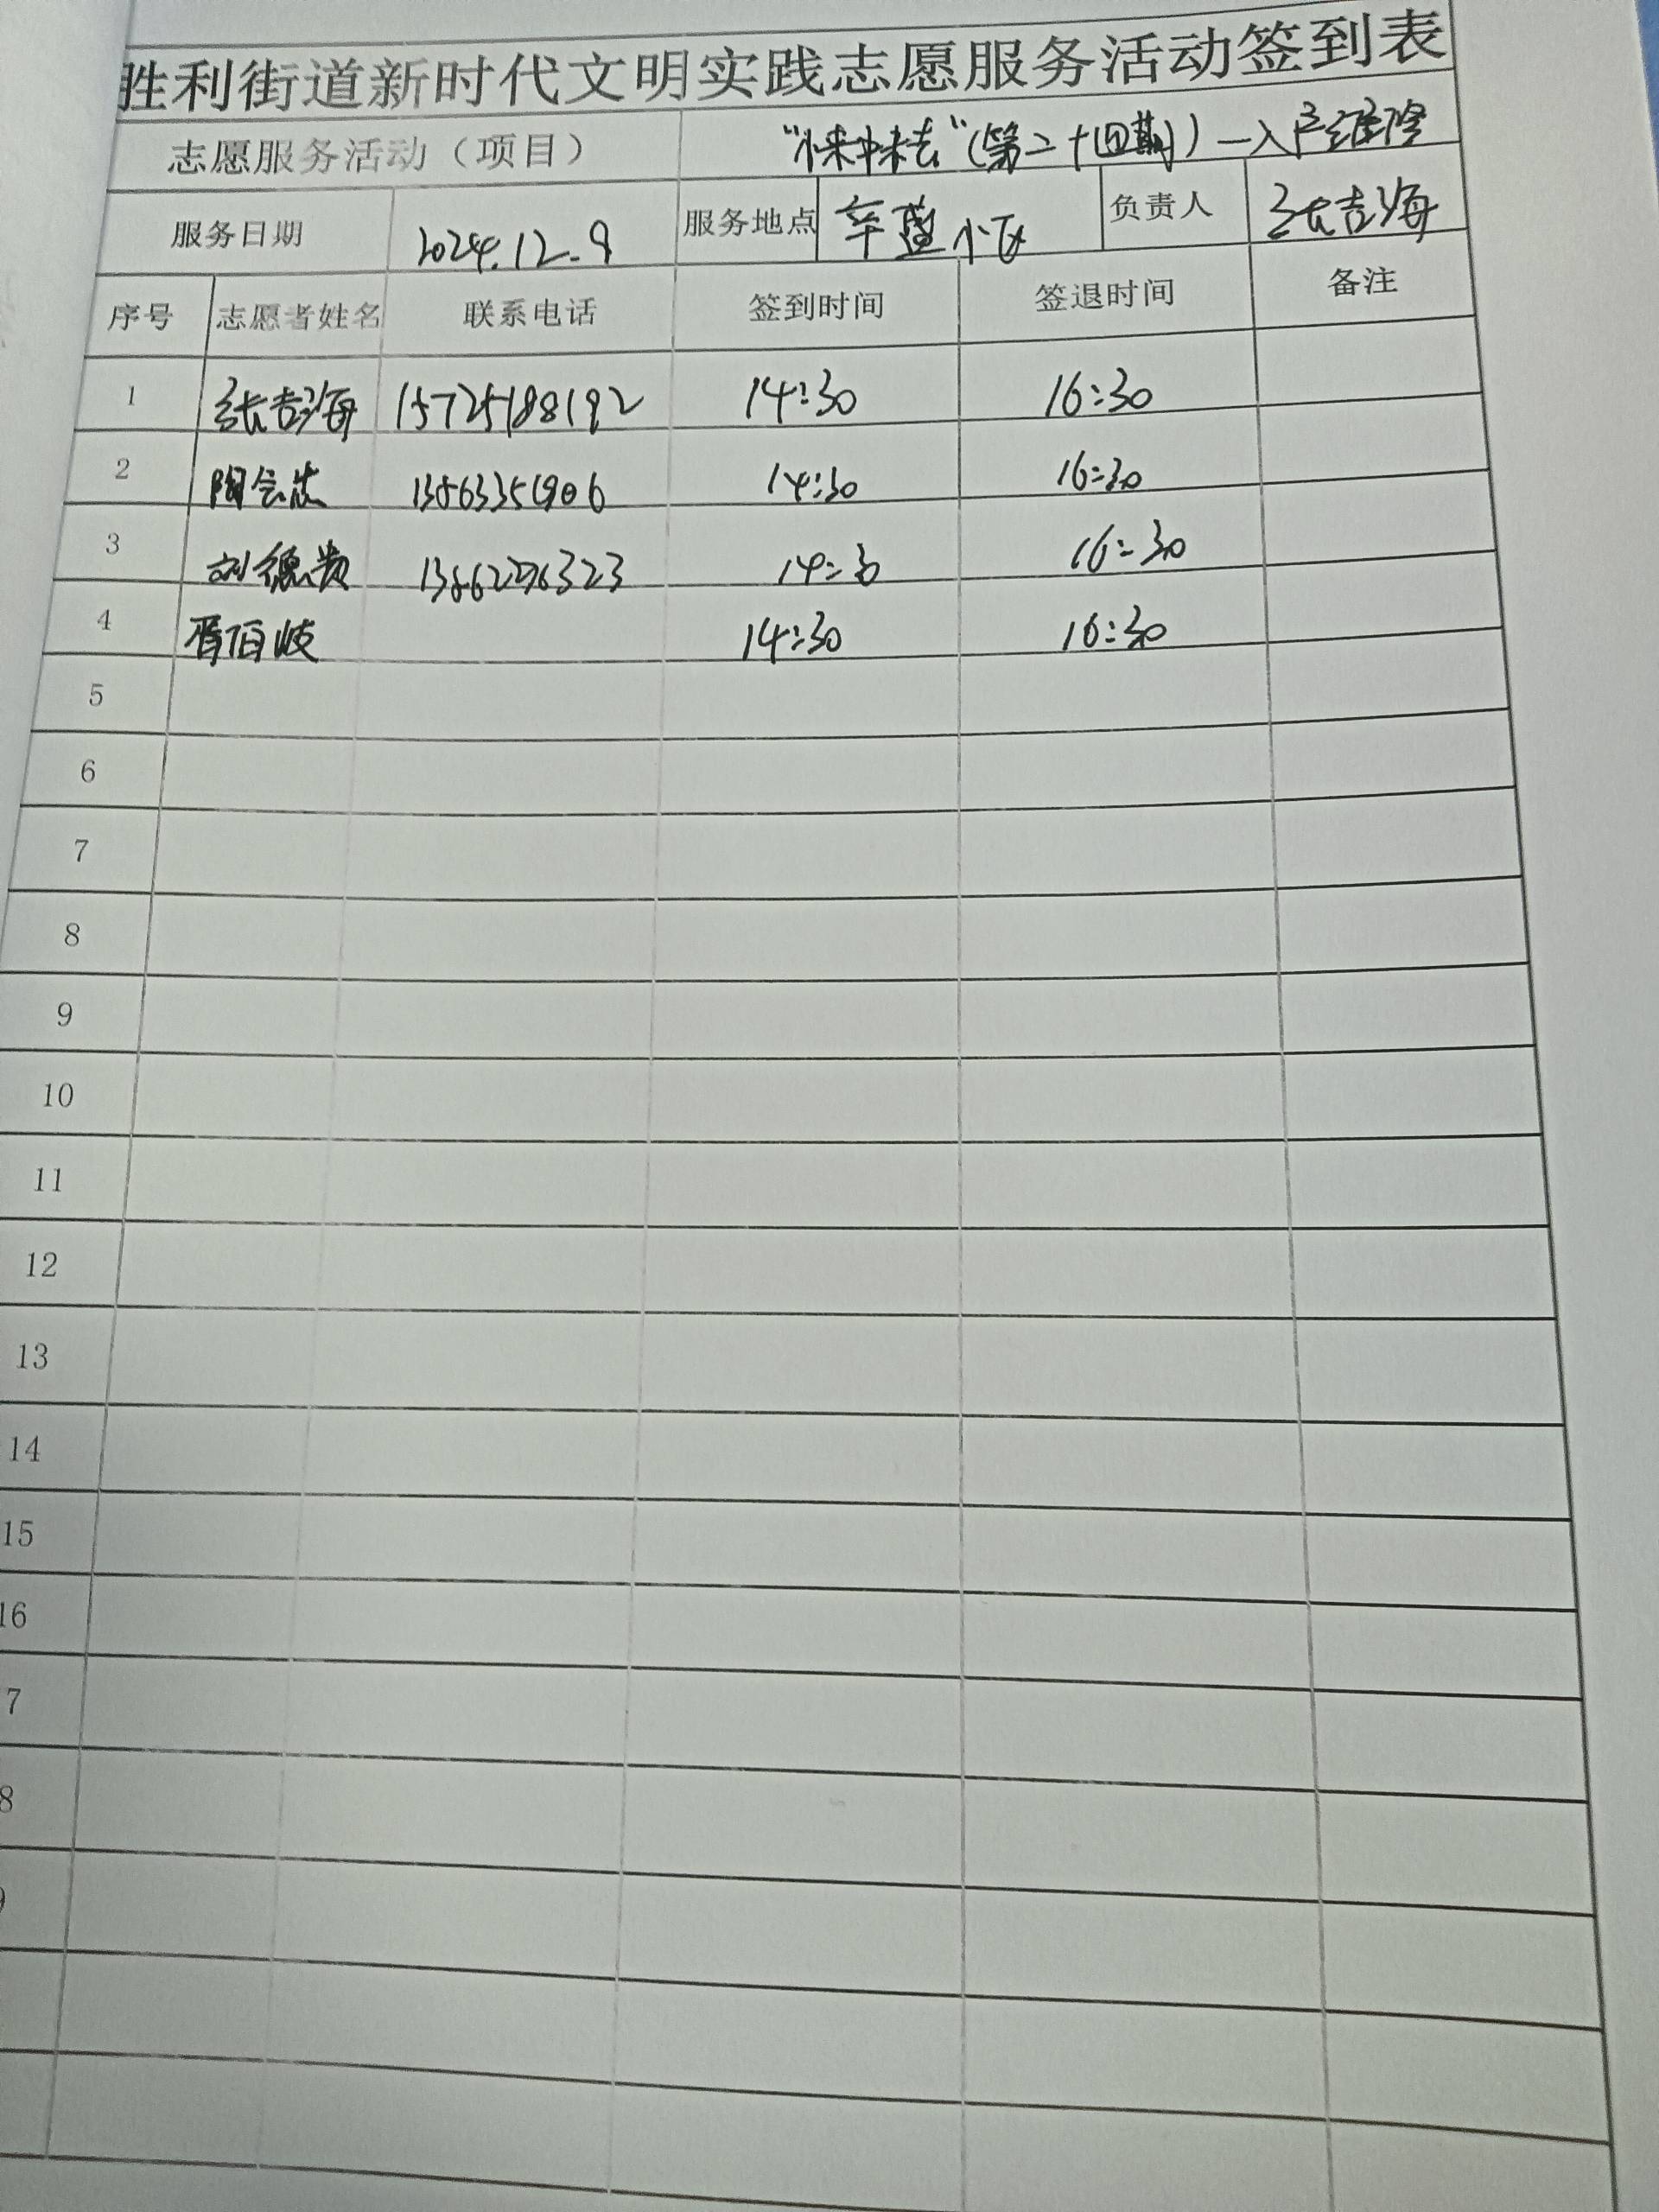 胜利街道新时代文明实践志愿服务活动签到表
志愿服务活动（项目） （第二十四期）—入户维修
服务日期 2024.12.9 服务地点 小区 负责人 张吉海
序号 志愿者姓名 联系电话 签到时间 签退时间 备注
1 张吉海 15725188192 14:30 16:30
2 14:30 16:30
3 刘德贵 14:30 16:30
4 14:30 16:30
5
6
7
8
9
10
11
12
13
14
15
16
7
8